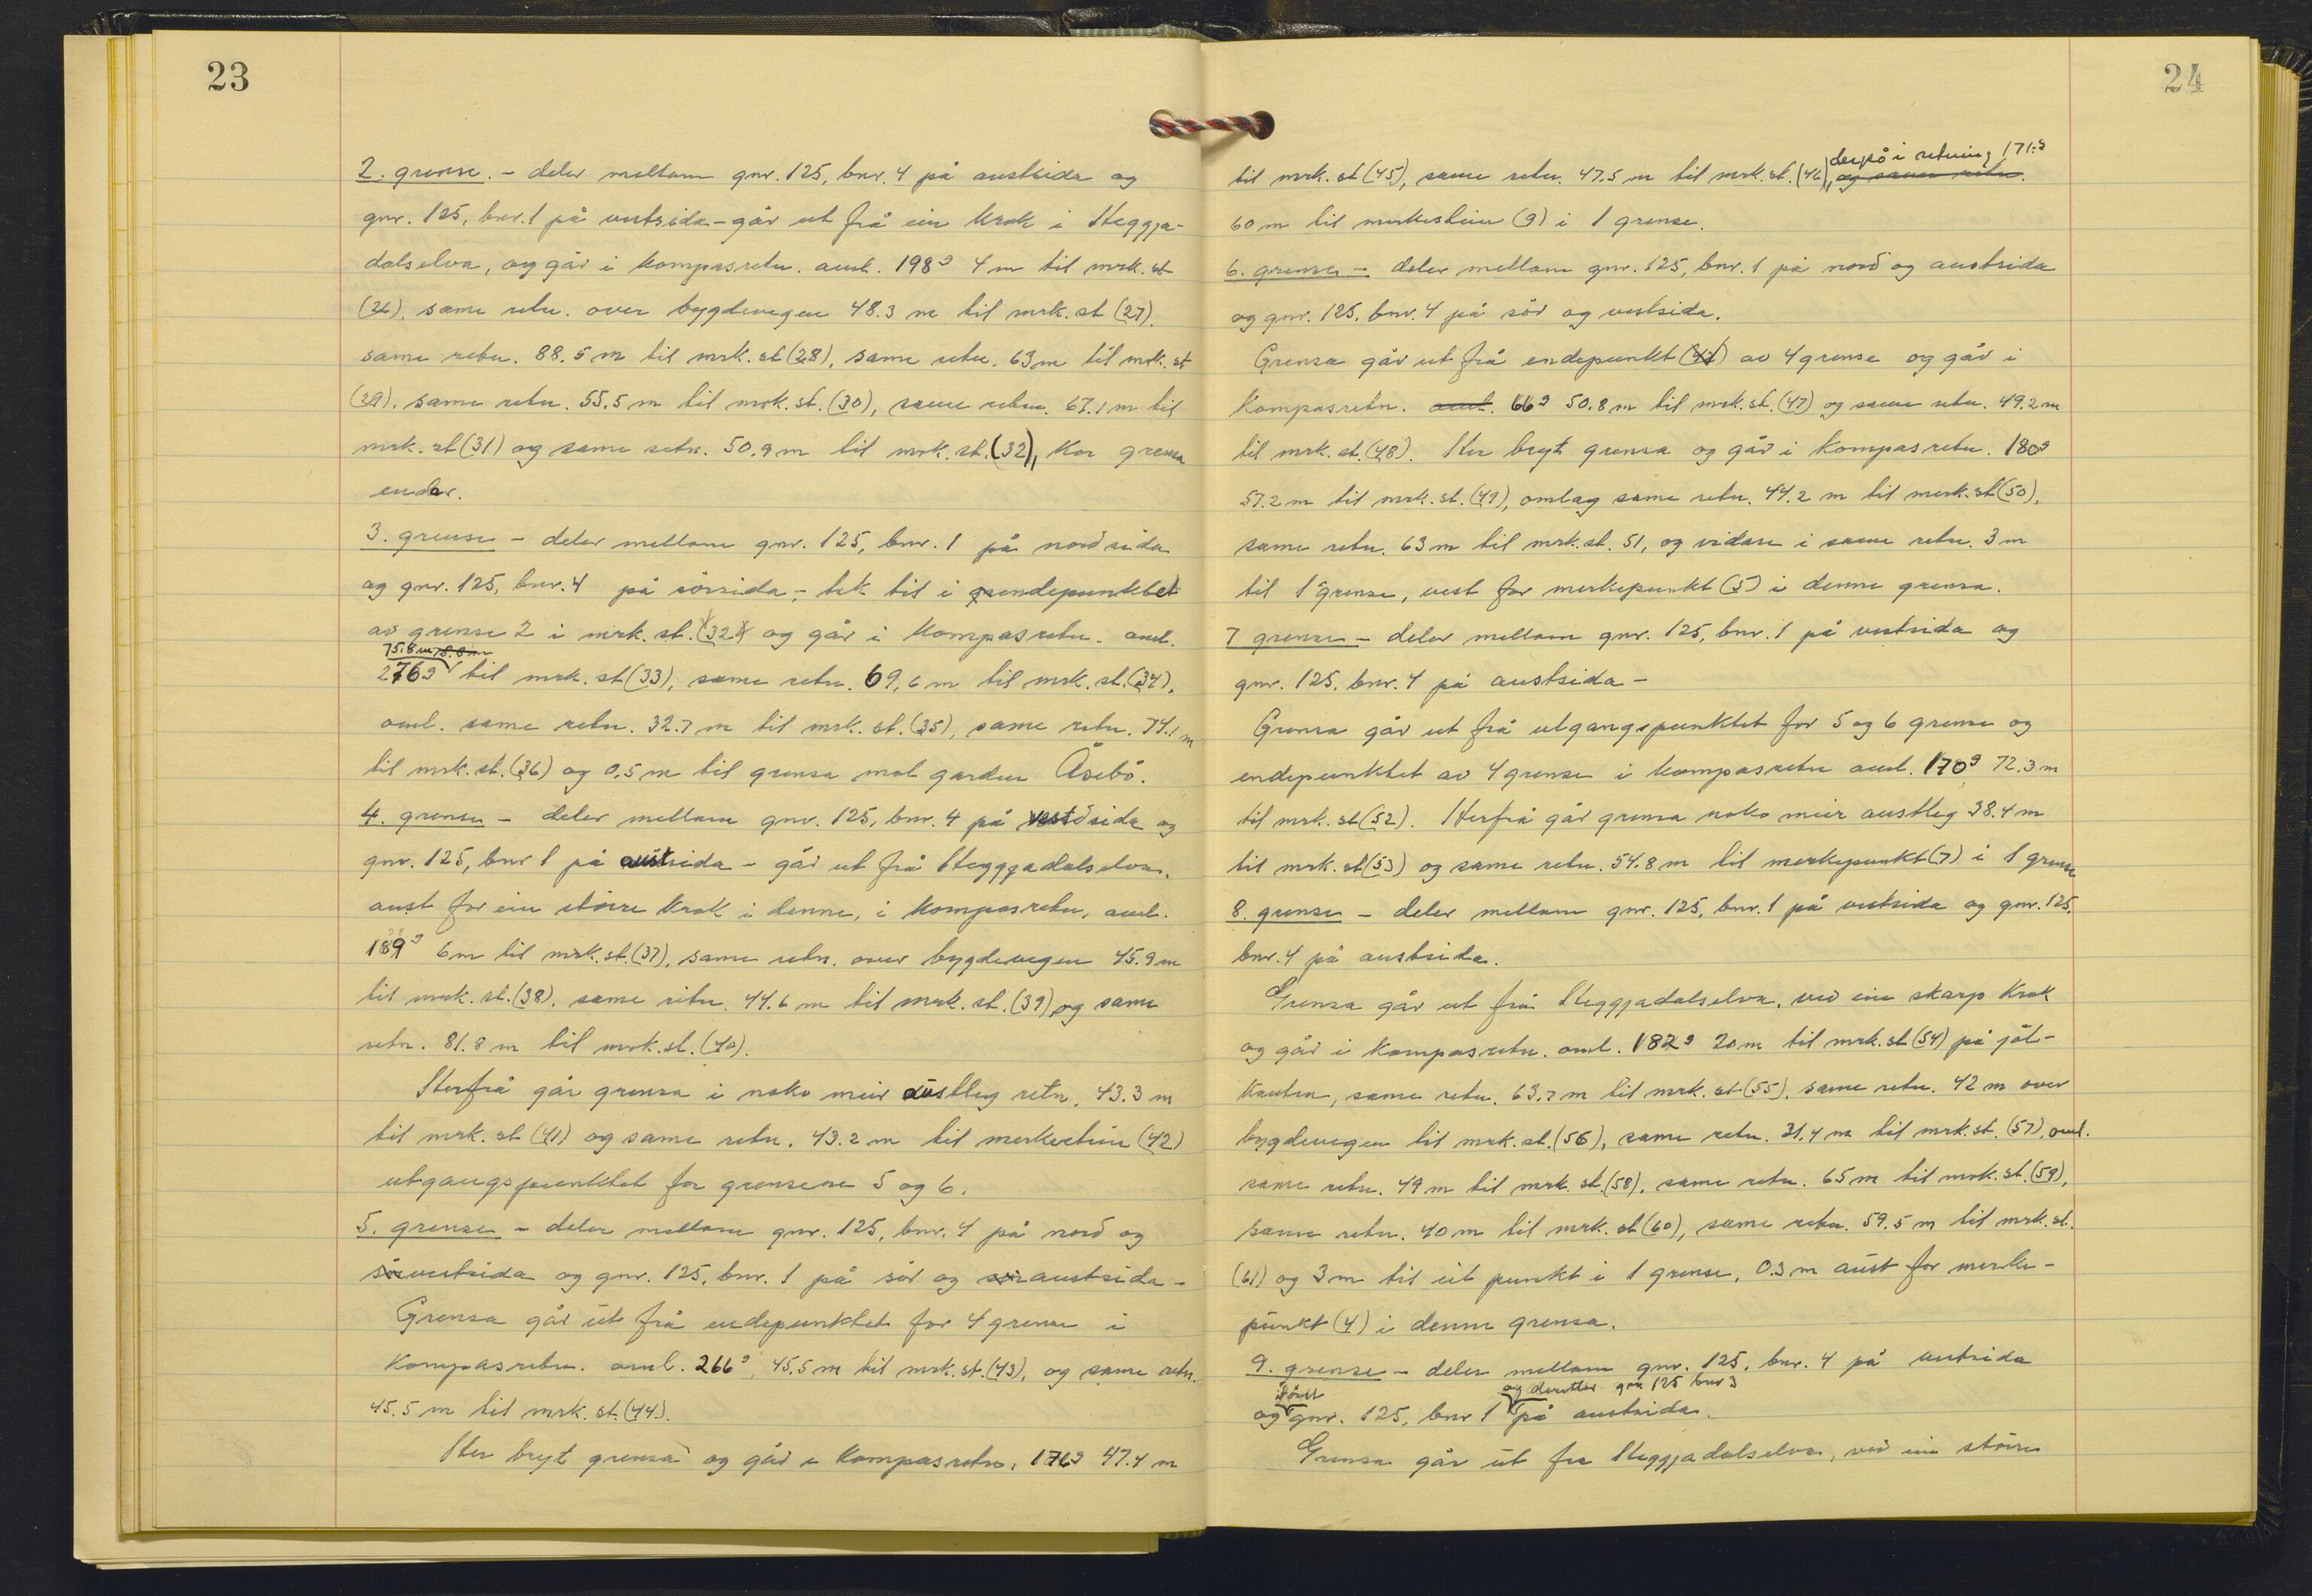 23
2. grense. - deler mellom gnr. 125, bnr. 4 på austsida og
gnr. 125, bnr. 1 på vestsida - går ut frå ein krok i Heggja-
dalselva, og går i kompasretn. oml. 198ᵍ 4 m til mrk. st
(26), same retn. over bygdevegen 48.3 m til mrk. st (27).
same retn. 88.5 m til mrk. st (28), same retn. 63 m til mrk. st
(29). same retn. 55,5 m til mrk. st. (30), same retn. 67.1 m til
mrk. st (31) og same retn. 50.9 m til mrk. st. (32), kor grensa
endar.
3. grense - deler mellom gnr. 125, bnr. 1 på nordsida
og gnr. 125, bnr. 4 på sörsida, - tek til i endepunktet
av grense 2 i mrk. st. (32) og går i kompasretn. oml.
75.8 m
276ᵍ til mrk. st (33), same retn. 69,6 m til mrk. st. (34),
oml. same retn. 32.7 m til mrk. st. (35), same retn. 74.1 m
til mrk. st. (36) og 0,5 m til grensa mot garden Åsebö.
4. grense - deler mellom gnr. 125, bnr. 4 på vestsida og
gnr. 125, bnr 1 på austsida - går ut frå Heggjadalselva,
aust for ein större krok i denne, i kompasretn, oml.
189ᵍ 6 m til mrk. st. (37), same retn. over bygdevegen 45.9 m
til mrk. st. (38). same retn. 44.6 m til mrk. st. (39) og same
retn. 81.8 m til mrk. st. (40).
Herfrå går grensa i noko meir austleg retn. 43.3 m
til mrk. st (41) og same retn. 43.2 m til merkestein (42)
utgangspunktet for grensene 5 og 6.
5. grense - deler mellom gnr. 125, bnr. 4 på nord og
vestsida og gnr. 125, bnr. 1 på sör og austsida -
Grensa går ut frå endepunktet for 4 grense i
kompasretn. oml. 266ᵍ, 45,5 m til mrk. st. (43), og same retn.
45.5 m til mrk. st. (44).
Her bryt grensa og går i kompasretn. 176ᵍ 47.4 m
24
derpå i retning 171ᵍ
til mrk. st (45), same retn. 47.5 m til mrk. st. (46), og same retn.
60 m til merkestein (9) i 1 grense.
6. grense - deler mellom gnr. 125, bnr. 1 på nord og austsida
og gnr. 125, bnr. 4 på sör og vestsida.
Grensa går ut frå endepunkt (42) av 4 grense og går i
kompasretn. oml. 66ᵍ 50.8 m til mrk. st. (47) og same retn. 49.2 m
til mrk. st. (48). Her bryt grensa og går i kompasretn. 180ᵍ
57.2 m til mrk. st. (49), omlag same retn. 44.2 m til merk. st (50),
same retn. 63 m til mrk. st. 51, og vidare i same retn. 3 m
til 1 grense, vest for merkepunkt (5) i denne grensa.
7 grense - deler mellom gnr. 125, bnr. 1 på vestsida og
gnr. 125, bnr. 4 på austsida -
Grensa går ut frå utgangspunktet for 5 og 6 grense og
endepunktet av 4 grense i kompasretn oml. 170ᵍ 72.3 m
til mrk. st (52). Herfrå går grensa noko meir austleg 38.4 m
til mrk. st (53) og same retn. 54.8 m til merkepunkt (7) i 1 grense
8. grense - deler mellom gnr. 125, bnr. 1 på vestsida og gnr. 125,
bnr. 4 på austsida.
Grensa går ut frå Heggjadalselva, ved ein skarp krok
og går i kompasretn. oml. 182ᵍ 20 m til mrk. st (54) på jöl-
kanten, same retn. 63.7 m til mrk. st (55), same retn. 42 m over
bygdevegen til mrk. st. (56), same retn. 31,4 m til mrk. st. (57), oml.
same retn. 49 m til mrk. st. (58), same retn. 65 m til mrk. st. (59),
same retn. 40 m til mrk. st (60), same retn. 59.5 m til mrk. st.
(61) og 3 m til eit punkt i 1 grense, 0.3 m aust for merke-
punkt (4) i denne grensa.
9. grense - deler mellom gnr. 125, bnr. 4 på vestsida
først og deretter gnr 125 bnr 3
og gnr. 125, bnr 1 på austsida.
Grensa går ut fra Heggjadalselva, ved ein större